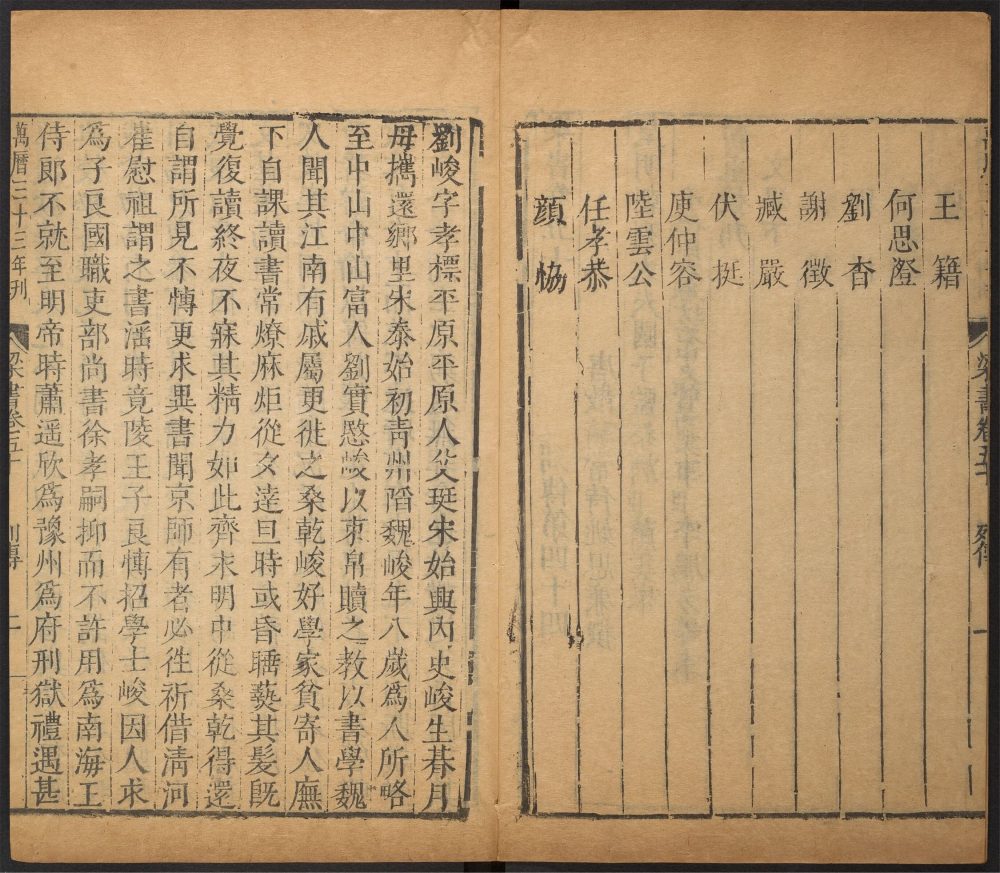 王籍
何思澄
劉杳
謝徵
臧嚴
伏挺
庾仲容
陸雲公
任孝恭
顏協
梁書卷五十
列傳
一
劉峻字孝標平原平原人父珽宋始興內史峻生朞月
母攜還鄉里宋泰始初青州陷魏峻年八歲爲人所略
至中山中山富人劉實愍峻以束帛贖之教以書學魏
人聞其江南有戚屬更徙之桑乾峻好學家貧寄人廡
下自課讀書常燎麻炬從夕達旦時或昏睡爇其髮既
覺復讀終夜不寐其精力如此齊永明中從桑乾得還
自謂所見不慱更求異書聞京師有者必徃祈借淸河
崔慰祖謂之書滛時竟陵王子良慱招學士峻因人求
爲子良國職吏部尚書徐孝嗣抑而不許用爲南海王
侍郎不就至明帝時蕭遥欣爲豫州爲府刑獄禮遇甚
萬曆三十三年刊
梁書卷五十
列傳
二